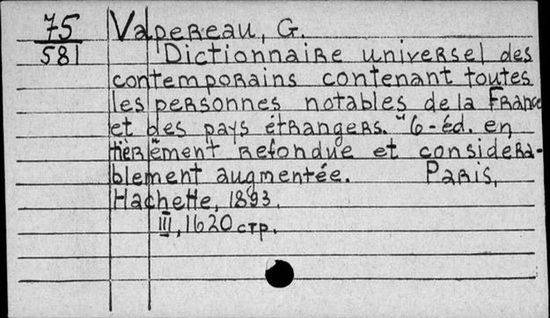 75
581
Vapereau, G.
Dictionnaire universel des
contemporains contenant toutes
les personnes notables de la France
et des pays étrangers. 6-éd. en
tièrement refondue et considera-
blement augmentée. Paris,
Hachette, 1893.
III, 1620 стр.